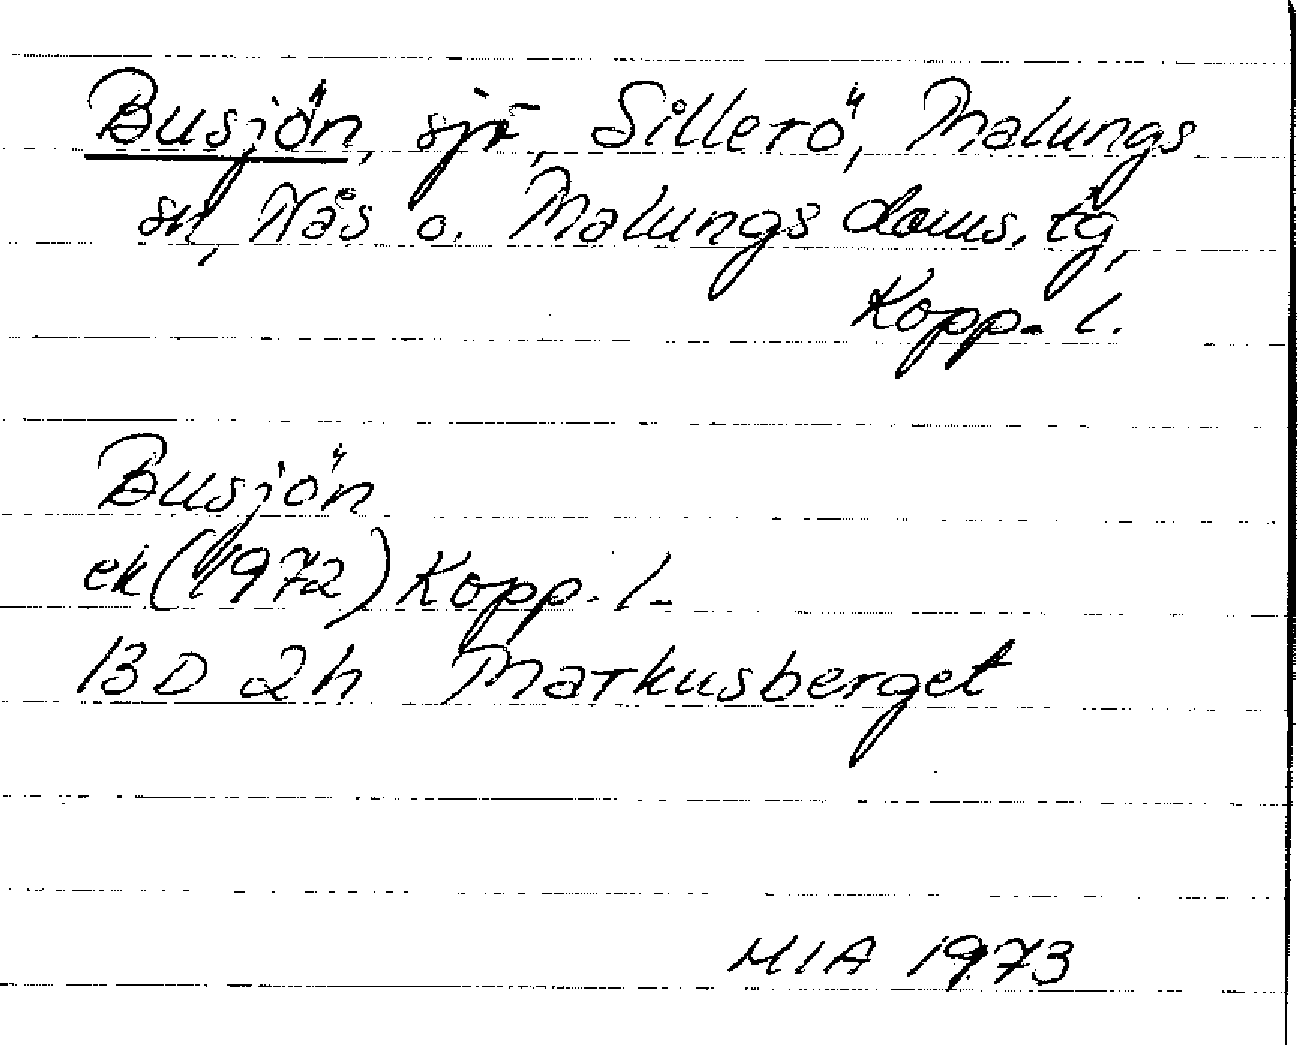 Busjön, sjö, Sillerö, Malungs
sn, Nås o. Malungs doms. tg,
Kopp. l.
Busjön
ek (1972) Kopp. l.
13 D 2h Markusberget
MIA 1973